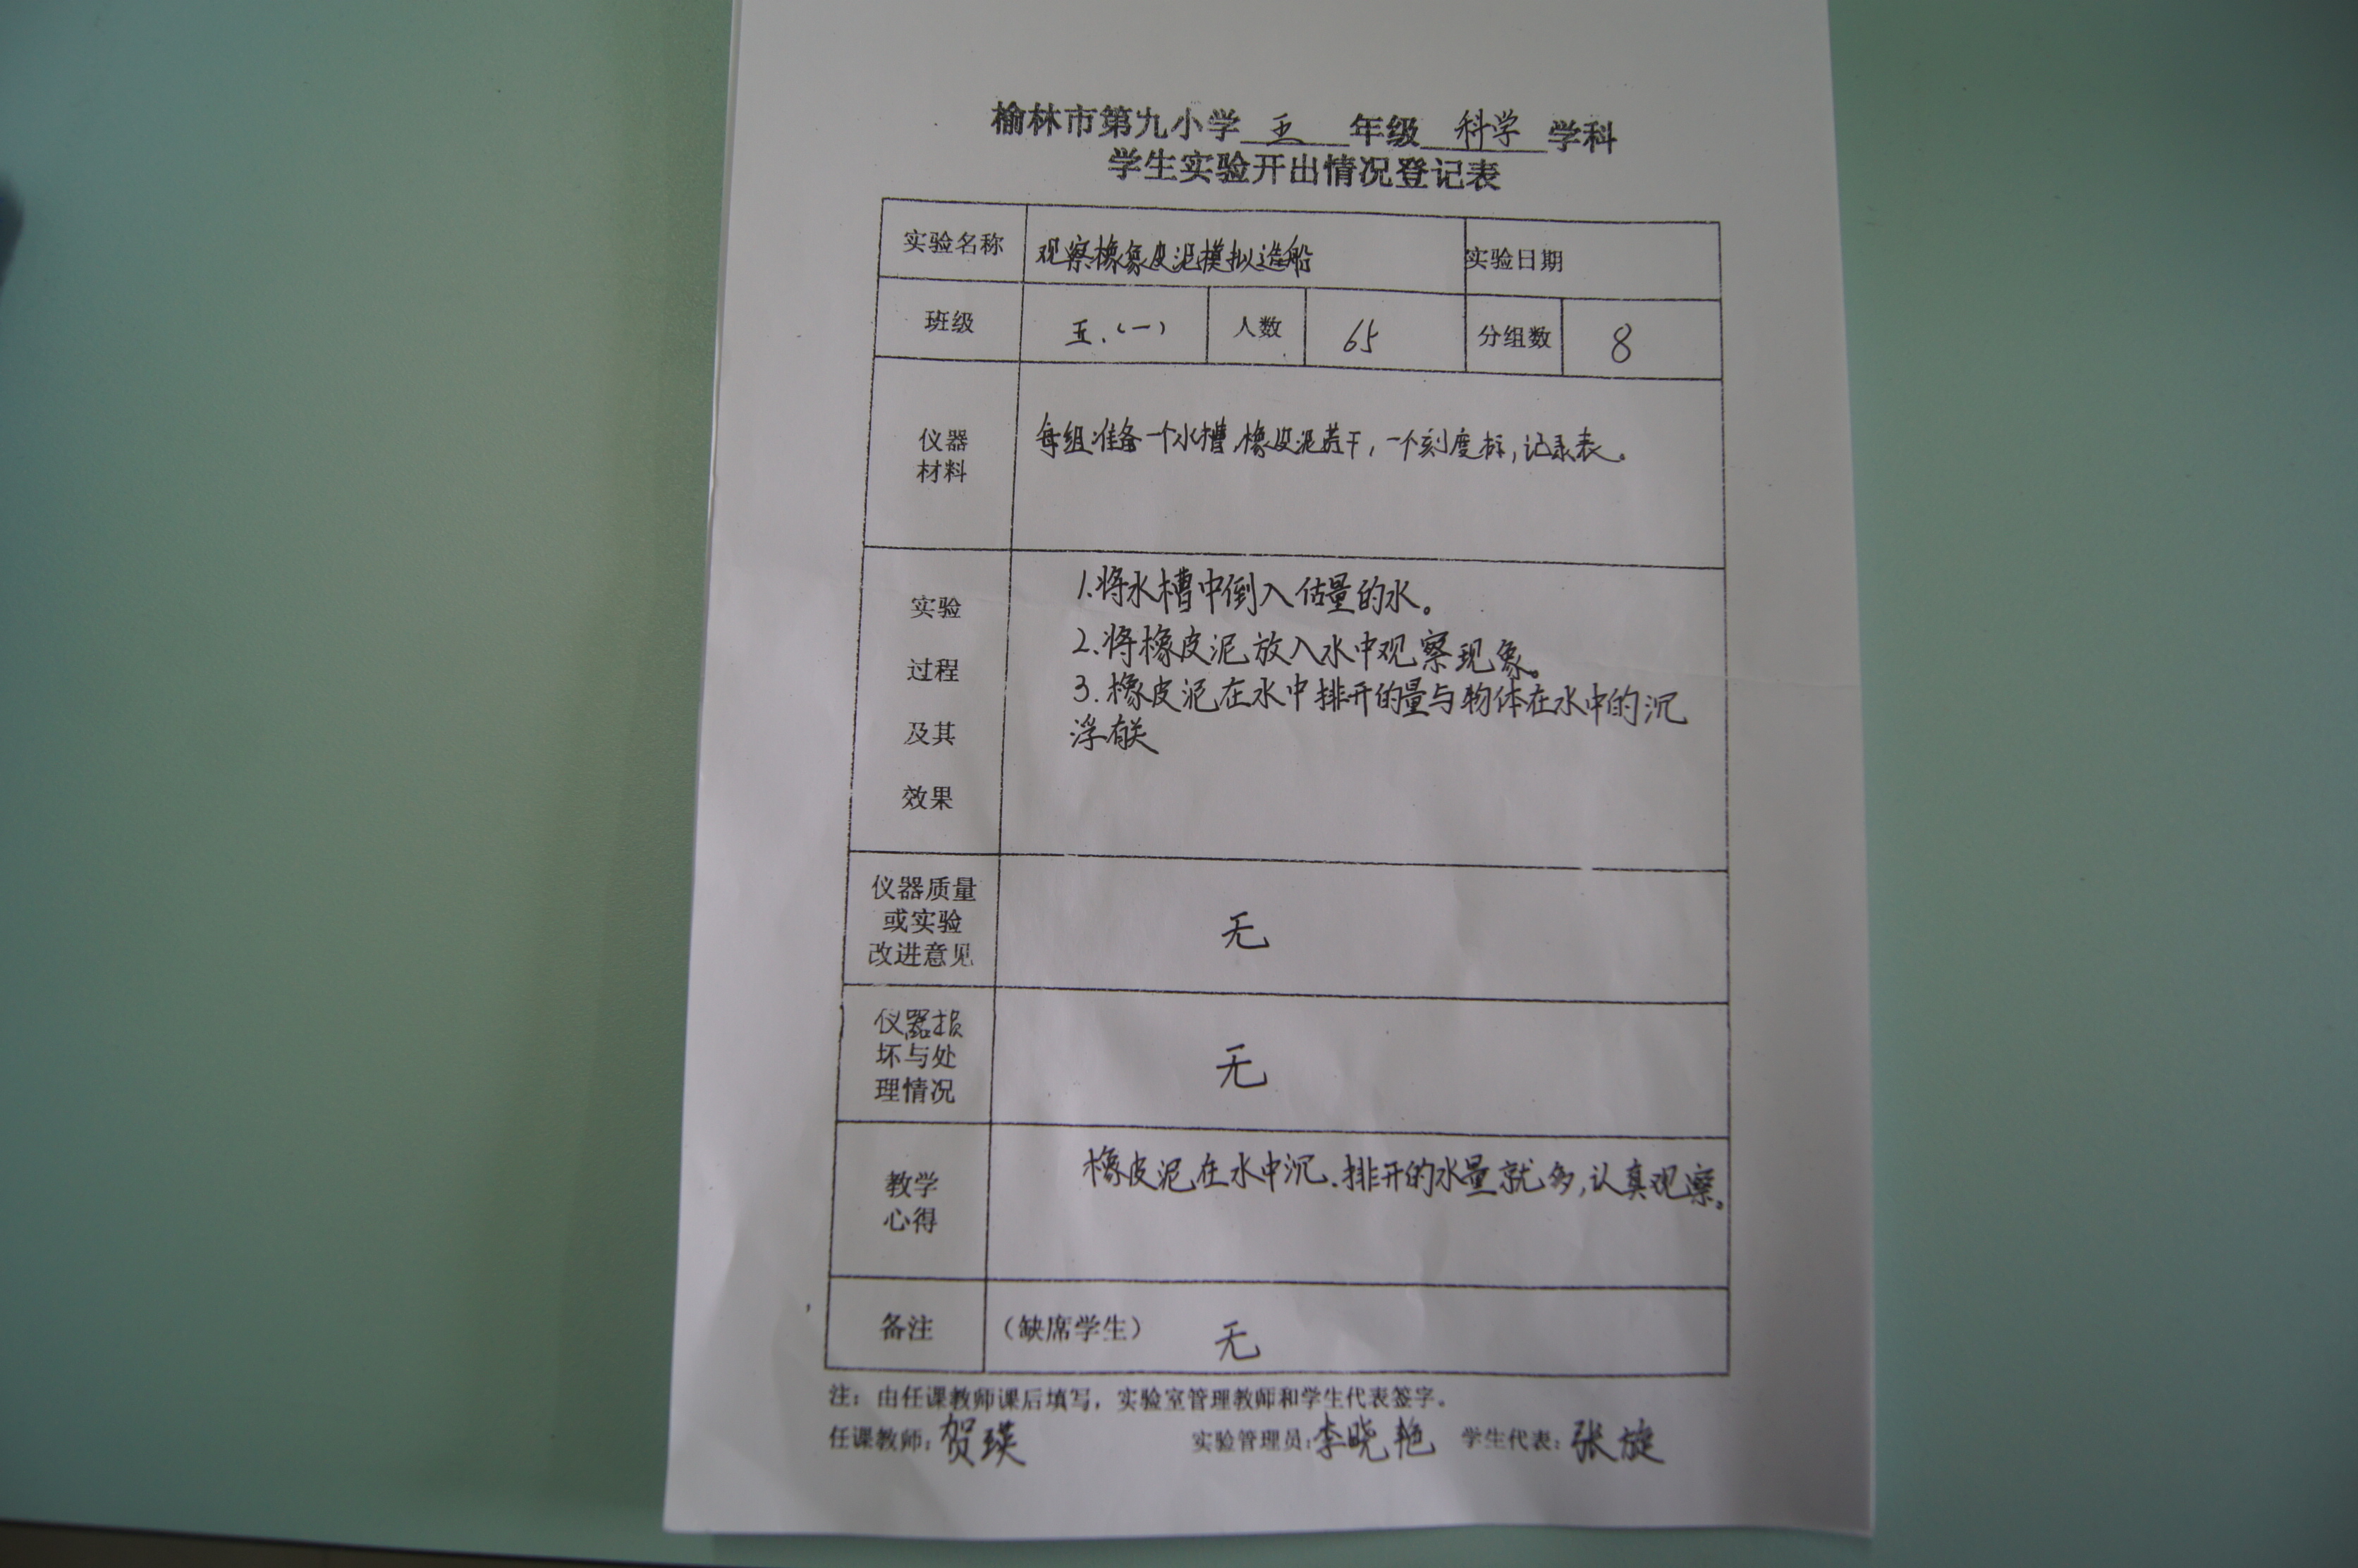 榆林市第九小学 五 年级 科学 学科
学生实验开出情况登记表
实验名称 观察橡象皮泥模拟造船 实验日期
班级 五.(一) 人数 65 分组数 8
仪器
材料
每组准备一个水槽,橡皮泥若干,一个刻度标,记录表。
实验
过程
及其
效果
1.将水槽中倒入估量的水。
2.将橡皮泥放入水中观察现象。
3.橡皮泥在水中排开的量与物体在水中的沉
浮有关
仪器质量
或实验
改进意见
无
仪器损
坏与处
理情况
无
教学
心得
橡皮泥在水中沉.排开的水量就多,认真观察。
备注 (缺席学生) 无
注:由任课教师课后填写,实验室管理教师和学生代表签字。
任课教师:贺瑛 实验管理员:李晓艳 学生代表:张旋